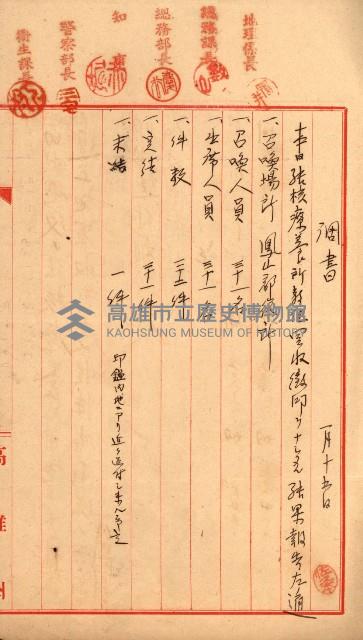 地理係長
總務課長
總務部長
知事
警察部長
衛生課長
調書
一月十五日
本日結核療養所敷地買收徵印ヲナシ結果報告左ノ通
一、召喚場所 鳳山郡役所
一、召喚人員 三十一名
一、出席人員 三十一名
一、件数 三十二件
一、完結 三十一件
一、未結 一件
印鑑内地ニアリ近ク送付
高雄州
高雄市立歷史博物館
KAOHSIUNG MUSEUM OF HISTORY